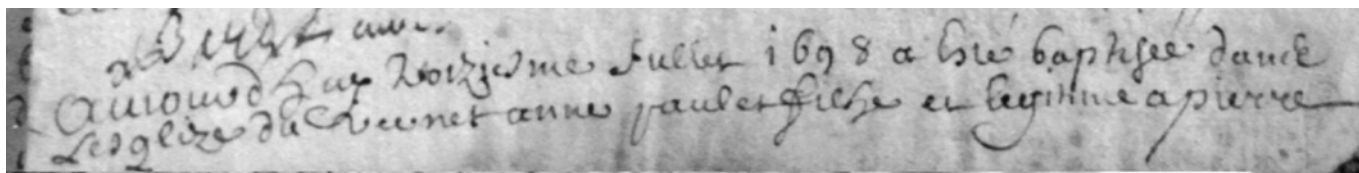 Auiourdhuy troiziesme Jullet 1698 a esté baptisée dans
Lesglize du Vernet anne paulet filhe et legitime a pierre